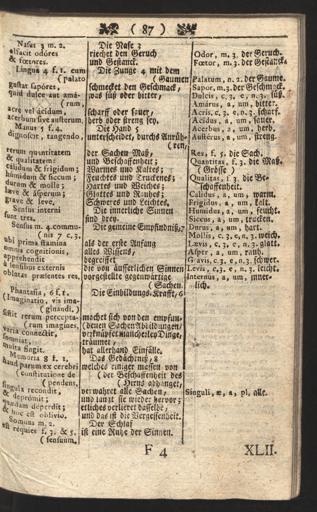 ( 87 )
Nasus 3 m. 2.
olfacit odóres
& fœtores.
Lingua 4 f. 1. cum
(palato
gustat sapóres,
quid dulce aut amá-
(rum,
acre vel ácidum
acerbum sive austerum.
Manus 5 f. 4.
dignoscit, tangendo,
rerum quantitatem
& qualitatem:
calidum & frigidum;
húmidum & siccum;
durum & molle;
læve & asperum;
grave & leve,
Sensus interni
sunt tres.
Sensus m. 4. commu-
(nis 7 c. 3,
ubi prima stamina
omnis cognitionis,
apprehendit
à sensibus externis
oblatas præsentes res.
Phantasia, 6 f. 1.
(Imaginatio, vis ima-
(ginándi,)
rerum
(rum imagines,
varia connectit,
somniat,
multa fingit.
Memoria 8 f. 1.
parum ex cerebri
(constitutione de
(pendens,
singula recondit,
& deprómit;
quædam deperdit;
& hoc est oblivio.
Somnus m. 2.
est requies f. 3. & 5.
(sensuum.
Die Nase 3
riechet den Geruch
und Gestanck.
Die Zunge 4 mit dem
(Gaumen
schmecket den Geschmack,
was süß oder bitter,
scharff oder sauer,
herb oder streng sey.
Die Hand 5
unterscheidet, durchs Anrüh-
(ren,
der Sachen Maß,
und Beschaffenheit;
Warmes und Kaltes;
Feuchtes und Truckenes;
Hartes und Weiches;
Glattes und Rauhes;
Schweres und Leichtes,
Die innerliche Sinnen
sind drey.
Die gemeine Empfindniß,7
als der erste Anfang
alles Wissens,
begreiffet
die von äusserlichen Sinnen
vorgestellte gegenwärtige
(Sachen.
Die Einbildungs-Krafft, 6
machet sich von den empfun-
(denen Sachen Abbildungen,
verknüpfet mancherley Dinge,
träumet,
hat allerhand Einfälle.
Das Gedächtniß, 8
welches einiger massen von
(der Beschaffenheit des
(Hirns abhänget,
verwahret alle Sachen,
und langt sie wieder hervor;
etliches verlieret dasselbe,
und das ist die Vergessenheit.
Der Schlaf
ist eine Ruhe der Sinnen.
Odor, m. 3. der Geruch.
Fœtor, m. 3. der Gestanck.
Palatum, n. 2. der Gaume.
Sapor, m. 3. der Geschmack.
Dulcis, c. 3. e, n. 3. süß.
Amárus, a, um, bitter.
Acris, c. 3. e, n. 3. scharf.
Acidus, a, um, sauer.
Acerbus, a, um, herb.
Austérus, a, um, streng.
Res, f. 5. die Sach.
Quantitas, f. 3. die Maß.
(Grösse)
Qualitas, f. 3. die Be-
schaffenheit.
Calidus, a, um, warm.
Frigidus, a, um, kalt.
Humidus, a, um, feucht.
Siccus, a, um, trucken.
Durus, a, um, hart.
Mollis, c. 3. e, n. 3. weich.
Lævis, c. 3. e, n. 3. glatt.
Asper, a, um, rauh.
Gravis, c. 3. e, n. 3. schwer.
Levis, c. 3. e, n. 3. leicht.
Internus, a, um, inner-
lich.
Singuli, æ, a, pl. alle.
F 4
XLII.